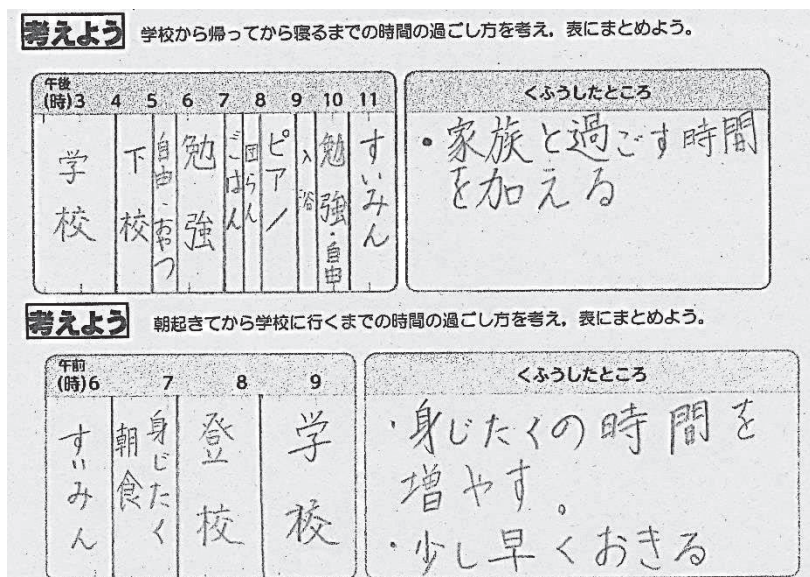 考えよう 学校から帰ってから寝るまでの時間の過ごし方を考え，表にまとめよう。
午後
(時)3 4 5 6 7 8 9 10 11
学校
下校
自由・おやつ
勉強
ごはん
団らん
ピアノ
入浴
勉強・自由
すいみん
くふうしたところ
・家族と過ごす時間
を加える
考えよう 朝起きてから学校に行くまでの時間の過ごし方を考え，表にまとめよう。
午前
(時)6 7 8 9
すいみん
身じたく
朝食
登校
学校
くふうしたところ
・身じたくの時間を
増やす。
・少し早くおきる